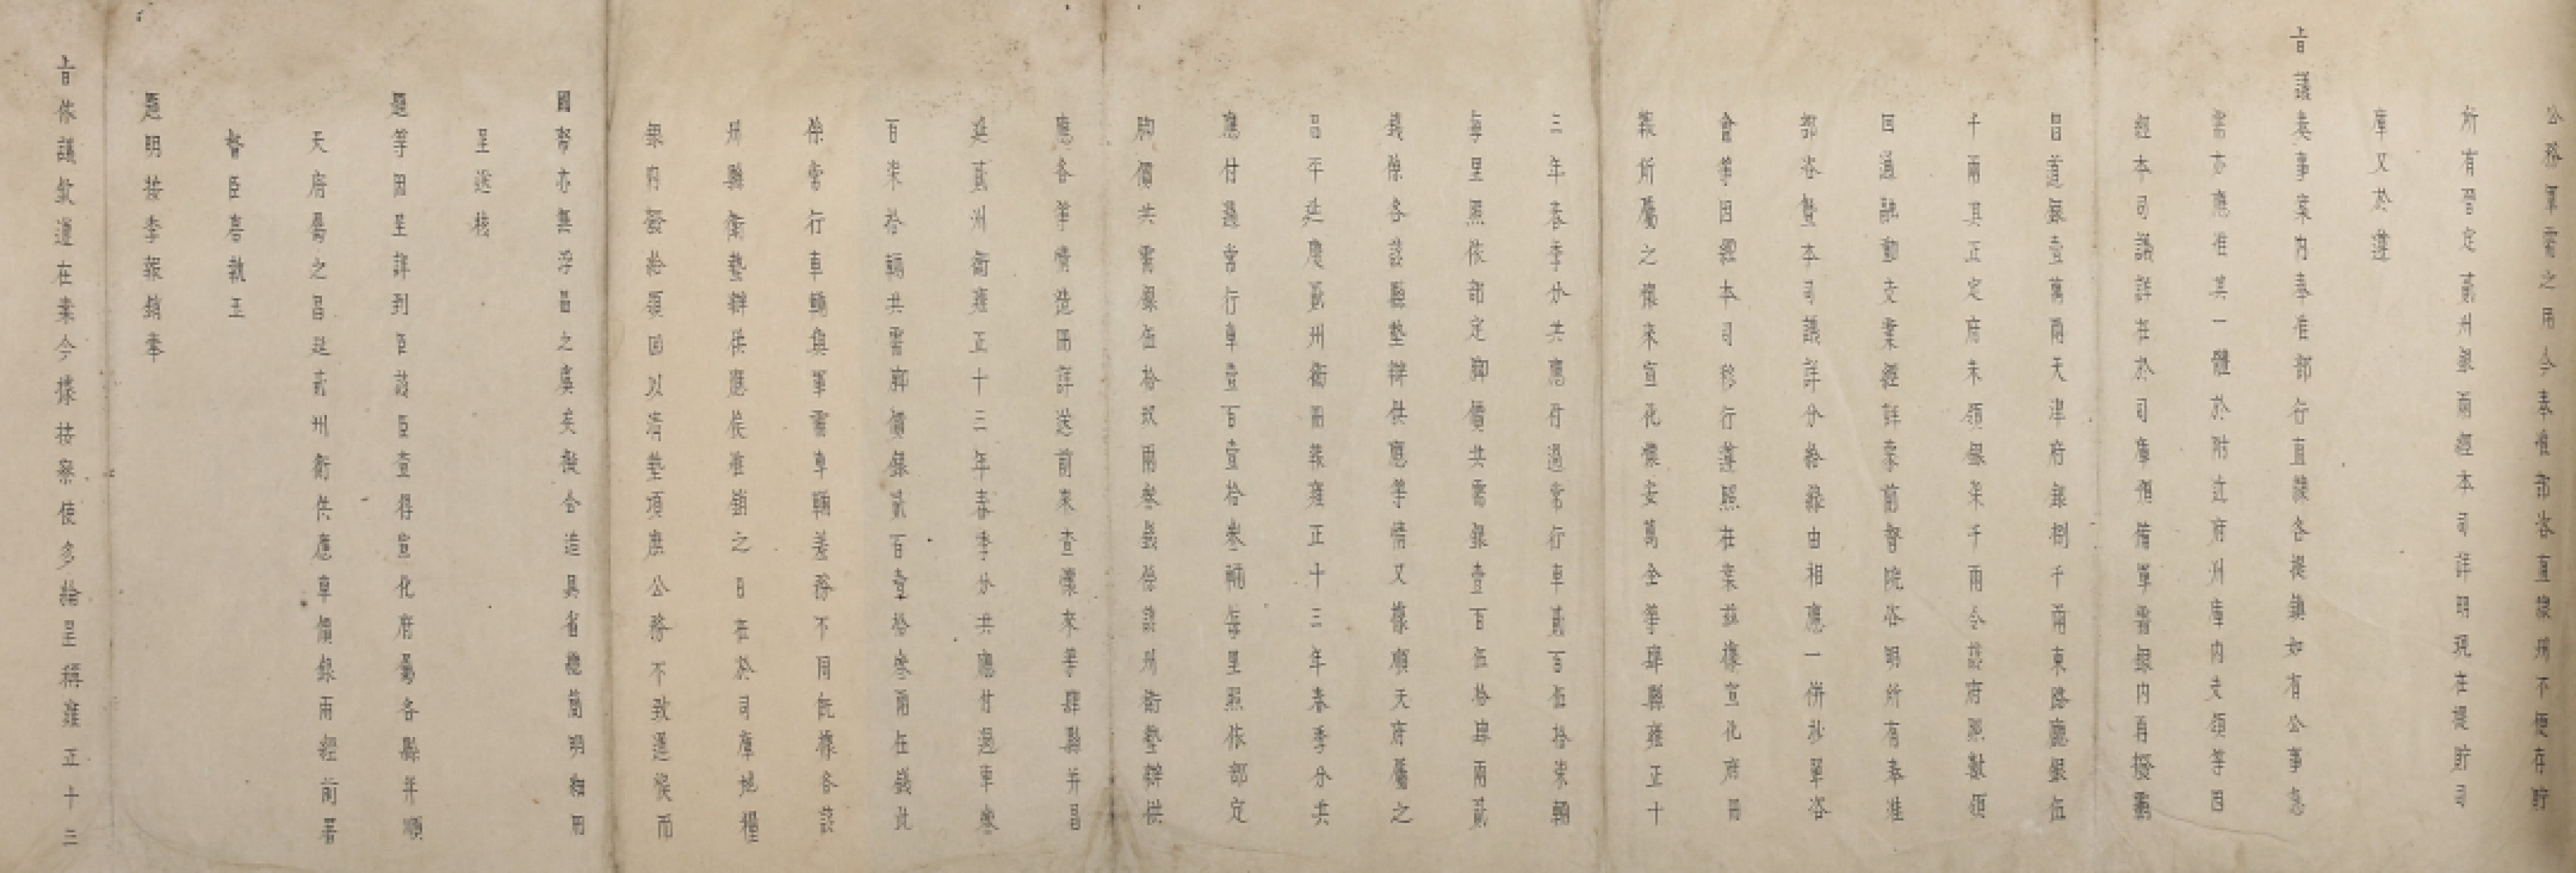 公務軍需之用今奉准部咨直隸州不便存貯
所有習定貳州銀兩經本司詳明現在提貯司
庫又於遵
旨議奏事案內奉准部行直隸各提鎮如有公事急
需亦應准其一體於附近府州庫內支領等因
經本司議詳在於司庫預備軍需銀內再撥霸
昌道銀壹萬兩天津府銀捌千兩東路廳銀伍
千兩其正定府未領銀柒千兩令該府照數領
回通融動支業經詳蒙前督院咨明所有奉准
部咨暨本司議詳分給緣由相應一併抄單咨
會等因經本司移行遵照在案茲據宣化府冊
報所屬之懷來宣化懷安萬全等肆縣雍正十
三年春季分共應付過常行車貳百伍拾柒輛
每里照依部定腳價共需銀壹百伍拾肆兩貳
錢係各該縣墊辦供應等情又據順天府屬之
昌平延慶貳州衛冊報雍正十三年春季分共
應付過常行車壹百壹拾叁輛每里照依部定
腳價共需銀伍拾玖兩叁錢係該州衛墊辦供
應各等情造冊詳送前來查懷來等肆縣并昌
延貳州衛雍正十三年春季分共應付過車叁
百柒拾輛共需腳價銀貳百壹拾叁兩伍錢此
係常行車輛與軍需車輛差務不同既據各該
州縣衛墊辦供應俟准銷之日在於司庫地糧
銀內撥給領回以清墊項庶公務不致遲悞而
國帑亦無浮冒之虞矣擬合造具省總簡明細冊
呈送核
題等因呈詳到臣該臣查得宣化府屬各縣并順
天府屬之昌延貳州衛供應車價銀兩經前署
督臣唐執玉
題明按季報銷奉
旨依議欽遵在案今據按察使多綸呈稱雍正十三